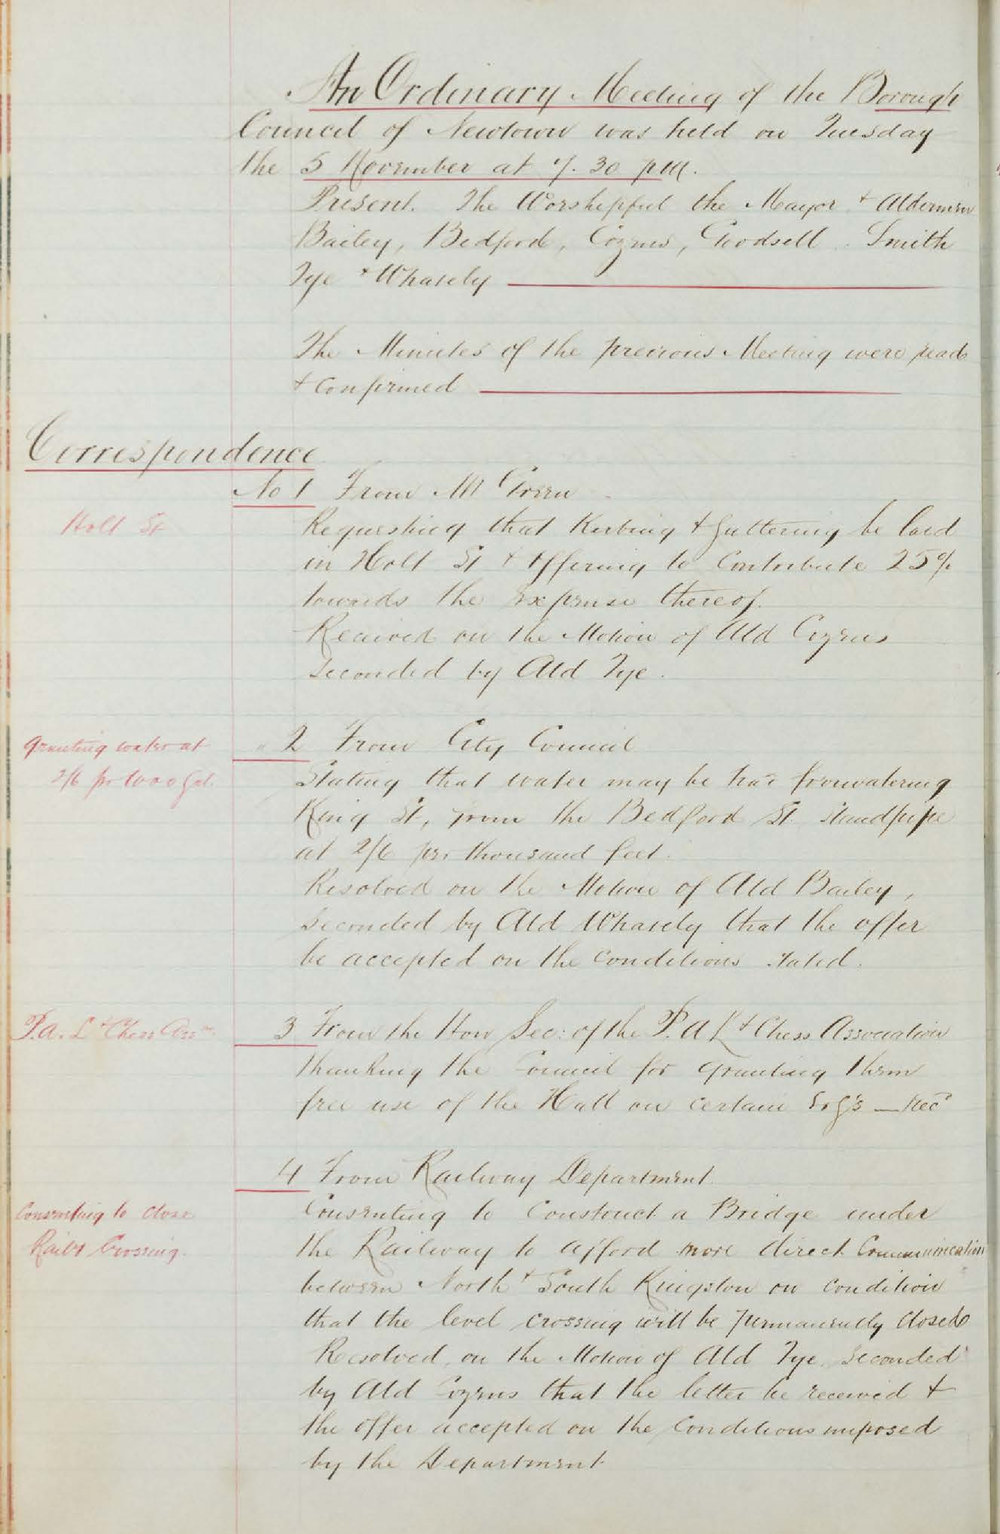 An Ordinary Meeting of the Borough
Council of Newtown was held on Tuesday
the 5 November at 7.30 pm.
Present. The Worshipful the Mayor & Aldermen
Bailey, Bedford, Cozens, Goodsell. Smith
Tye & Whately
The Minutes of the previous Meeting were read
& confirmed
Correspondence
No 1 From Mr Green
Holt St
Requesting that Kerbing & Guttering be laid
in Holt St & offering to Contribute 25%
towards the expense thereof.
Received on the Motion of Ald Cozens
seconded by Ald Tye.
" 2 From City Council
Granting water at
2/6 pr 1000 Gal.
Stating that water may be had for watering
King St, from the Bedford St. standpipe
at 2/6 per thousand feet.
Resolved on the Motion of Ald Bailey,
seconded by Ald Whately that the offer
be accepted on the conditions stated.
P.a. L & Chess Assn.
3 From the Hon Sec: of the P. A L & Chess Association
thanking the Council for granting them
free use of the Hall on certain Evg's — Recd
4 From Railway Department
Consenting to close
Railwy Crossing.
Consenting to Construct a Bridge under
the Railway to afford more direct Communication
between North & South Kingston on condition
that the level crossing will be permanently closed
Resolved, on the Motion of Ald Tye, seconded
by Ald Cozens that the letter be received &
the offer accepted on the conditions imposed
by the Department